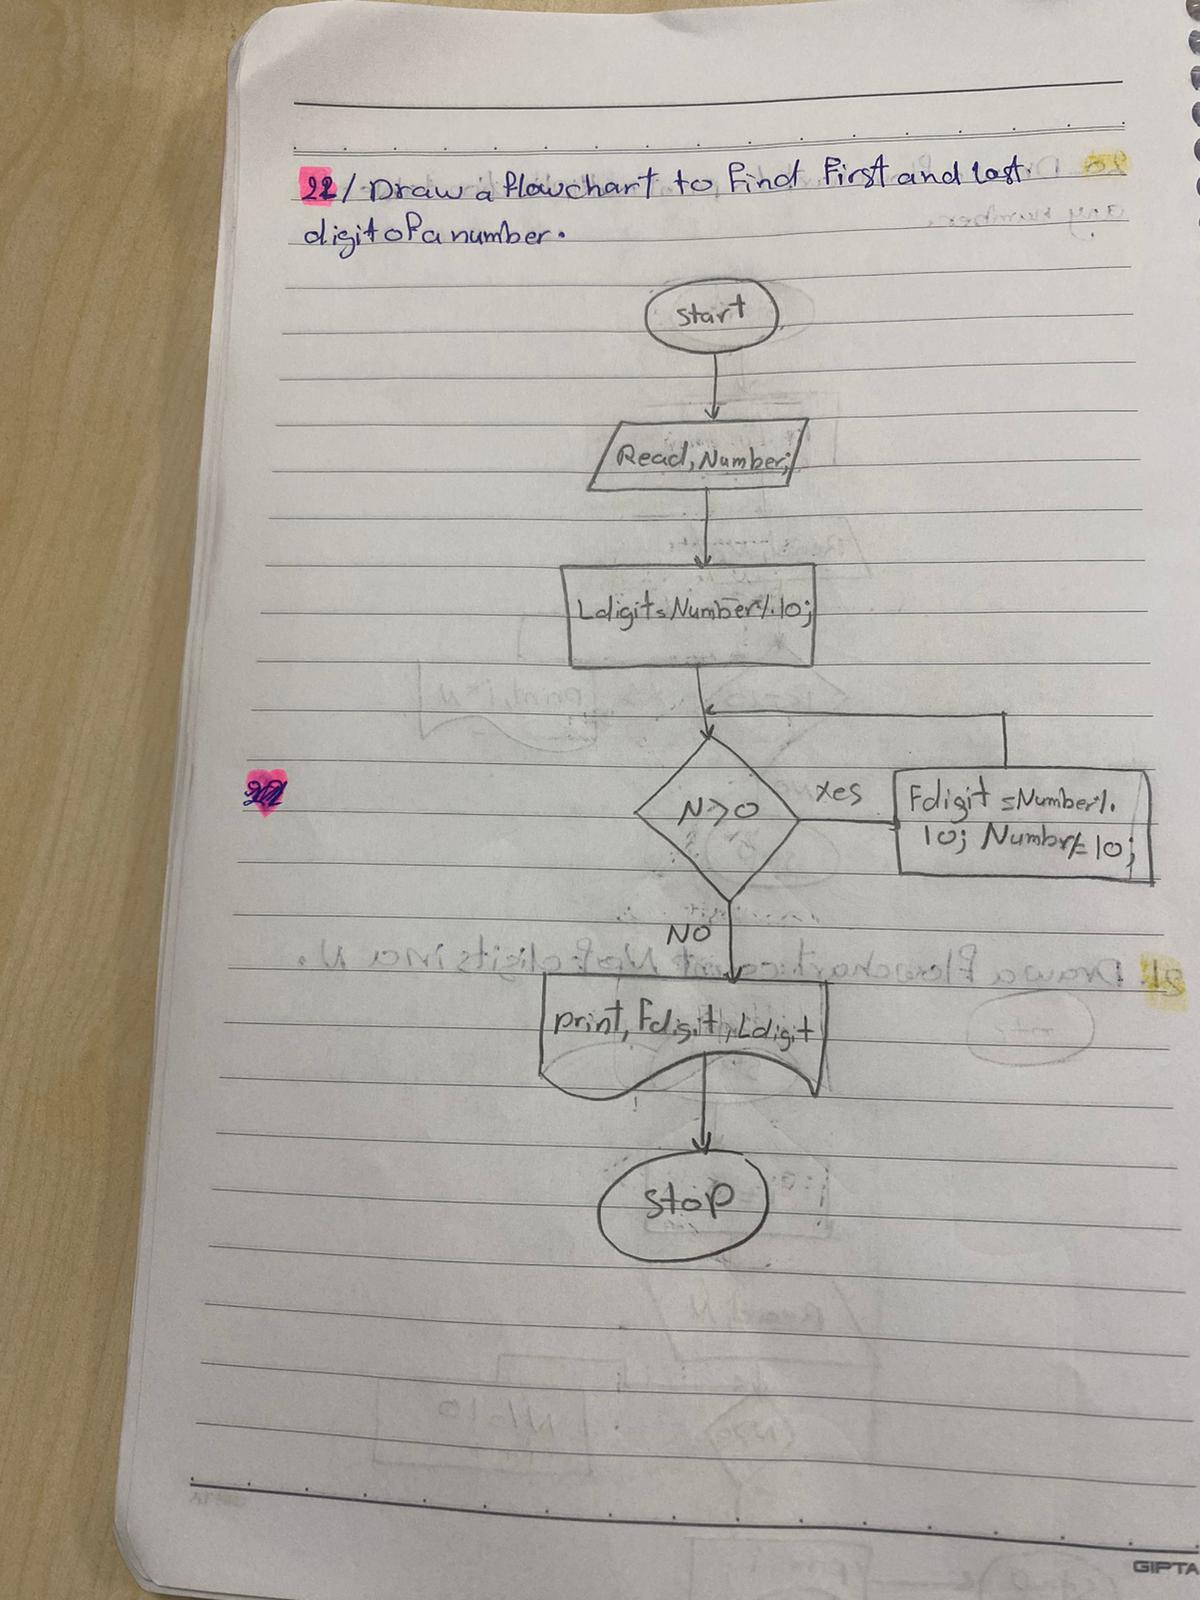 22/ Draw a flowchart to find first and last
digit of a number.
start
Read, Number;
Ldigit=Number%10;
N>0
yes
Fdigit =Number%
10; Numbr/=10;
NO
print, Fdigit, Ldigit
stop
GIPTA